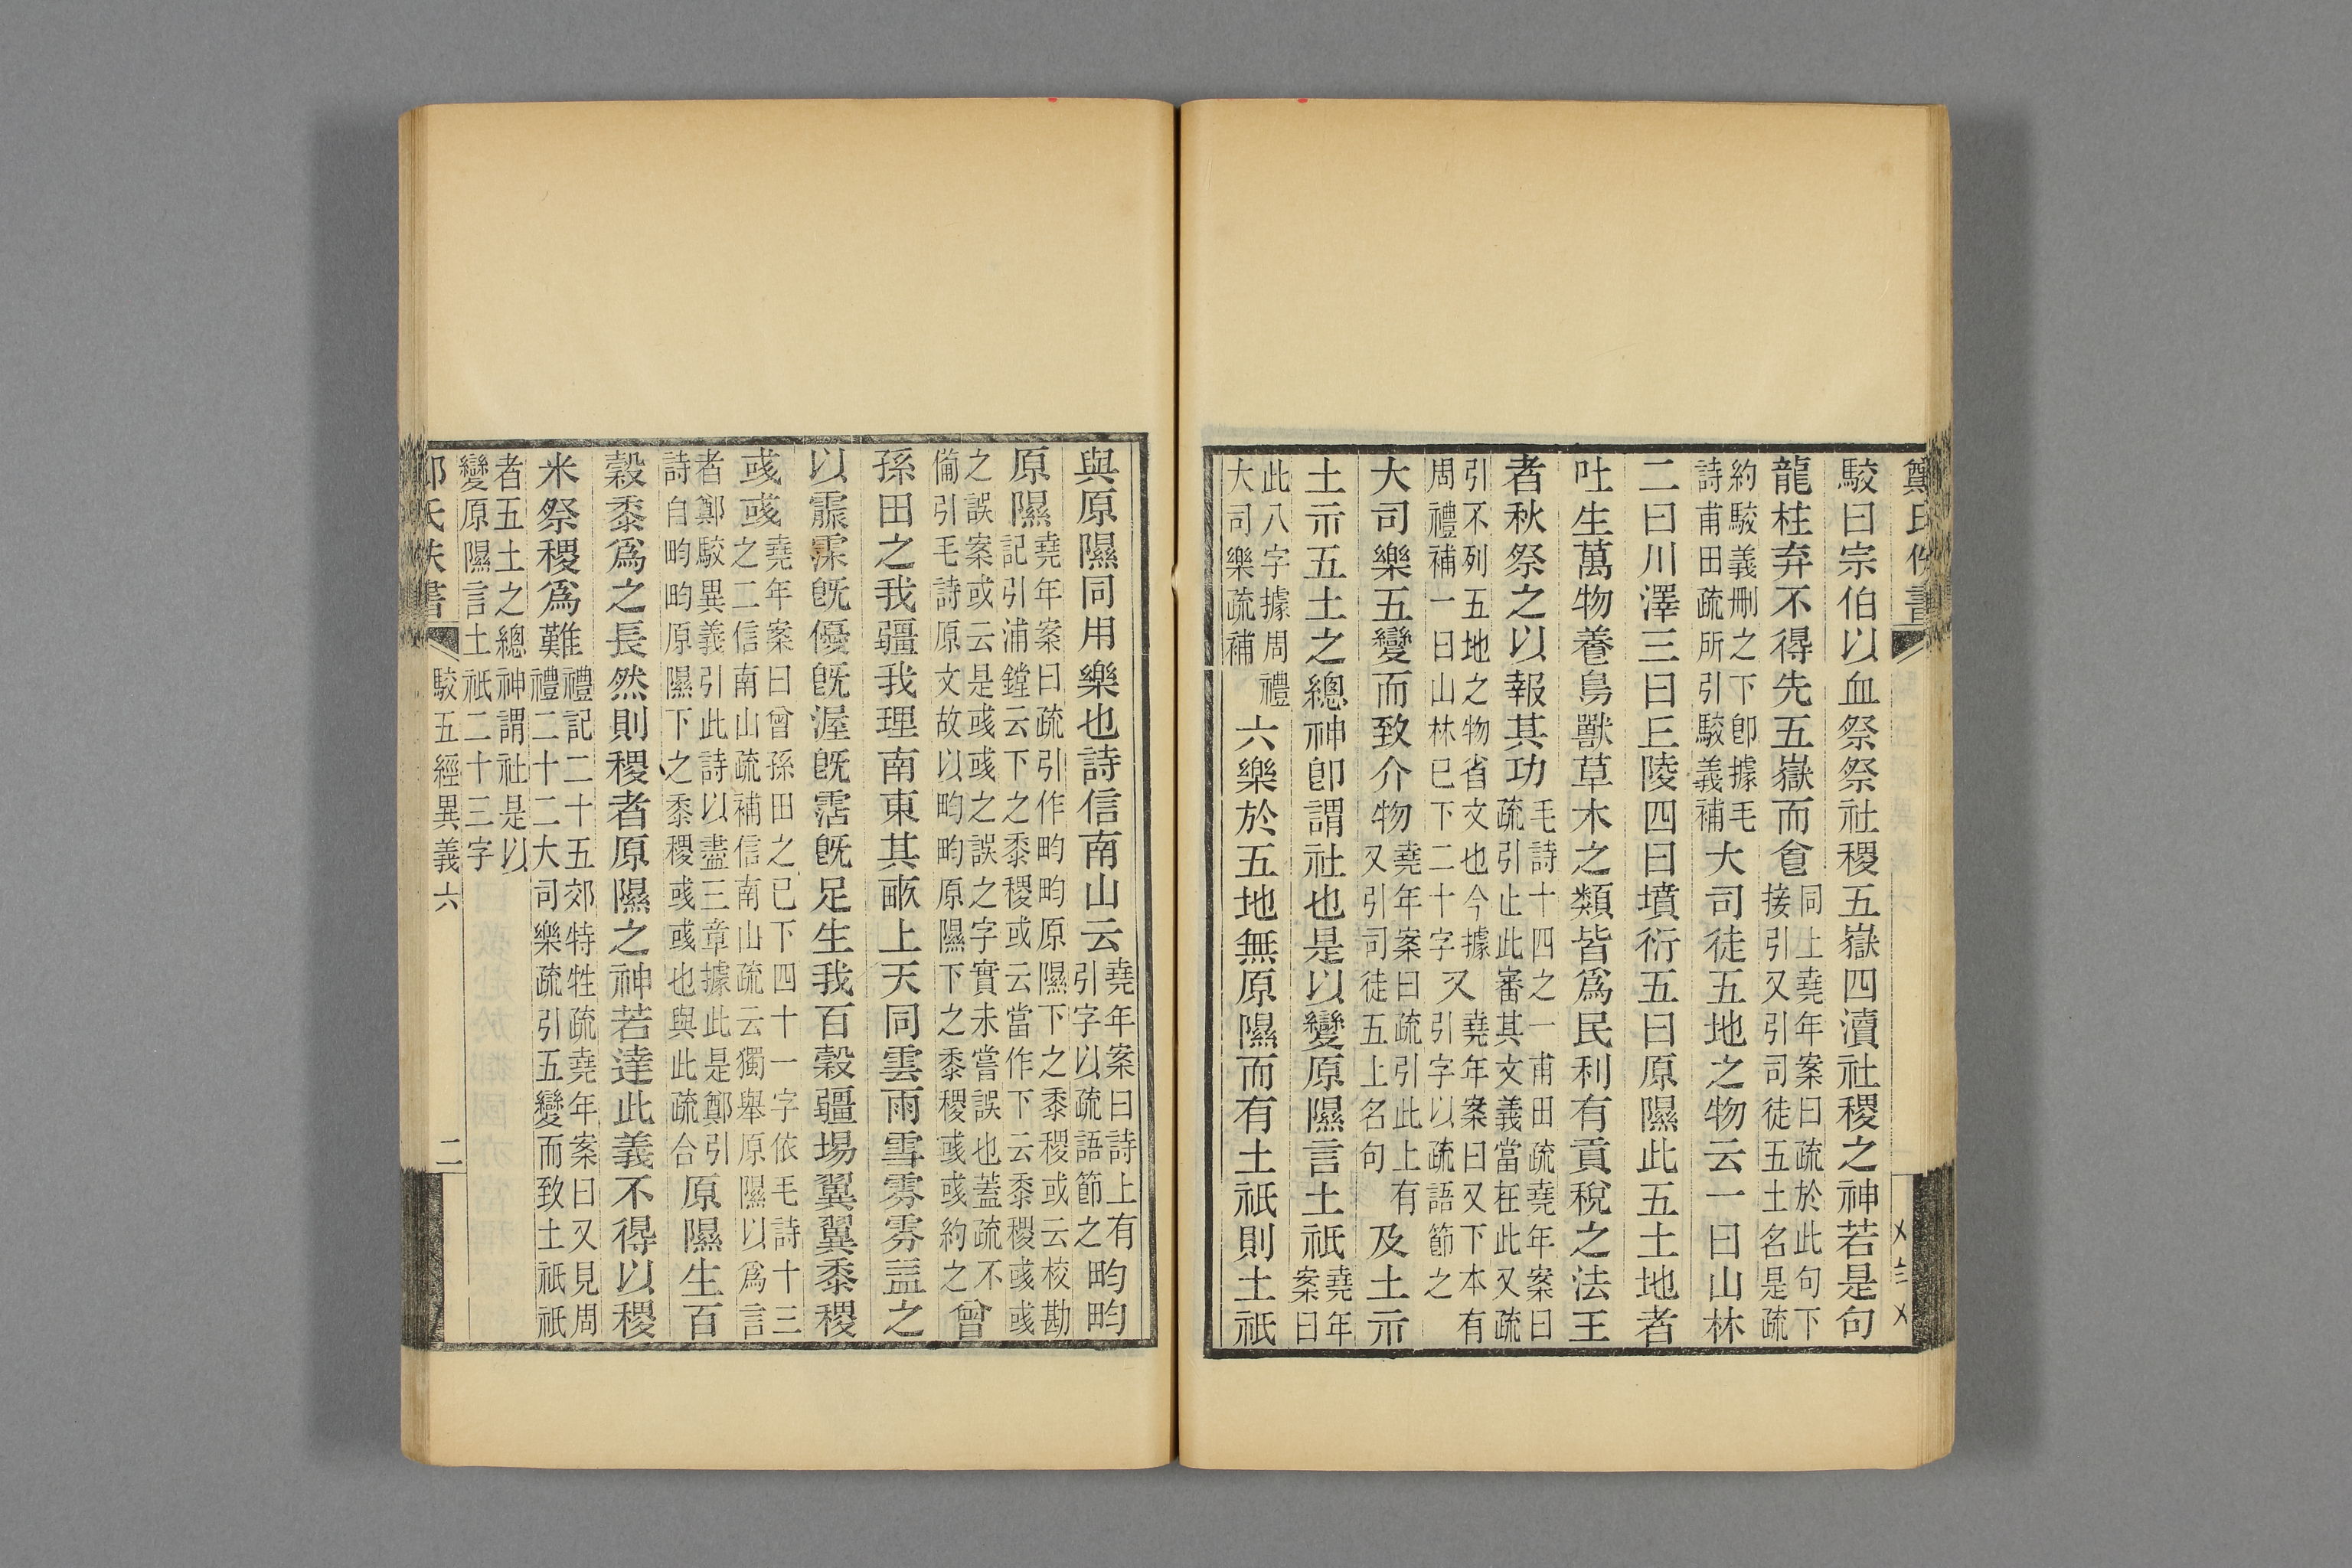 鄭氏佚書
駮曰宗伯以血祭祭社稷五嶽四瀆社稷之神若是句
龍柱弃不得先五嶽而食同上堯年案曰疏於此句下
接引又引司徒五土名是疏
約駮義刪之下卽據毛
詩甫田疏所引駮義補大司徒五地之物云一曰山林
二曰川澤三曰丘陵四曰墳衍五曰原隰此五土地者
吐生萬物養鳥獸草木之類皆爲民利有貢稅之法王
者秋祭之以報其功毛詩十四之一甫田疏堯年案曰
疏引止此審其文義當在此又疏
引不列五地之物省文也今據
周禮補一曰山林已下二十字又堯年案曰又下本有
引字以疏語節之
大司樂五變而致介物堯年案曰疏引此上有
又引司徒五土名句及土示
土示五土之總神卽謂社也是以變原隰言土祇堯年
案曰
此八字據周禮
大司樂疏補六樂於五地無原隰而有土祇則土祇
與原隰同用樂也詩信南山云堯年案曰詩上有
引字以疏語節之畇畇
原隰堯年案曰疏引作畇畇原隰下之黍稷或云校勘
記引浦鏜云下之黍稷或云當作下云黍稷彧彧
之誤案或云是彧彧之誤之字實未嘗誤也蓋疏不
備引毛詩原文故以畇畇原隰下之黍稷彧彧約之曾
孫田之我疆我理南東其畝上天同雲雨雪雰雰益之
以霢霂旣優旣渥旣霑旣足生我百穀疆埸翼翼黍稷
彧彧堯年案曰曾孫田之已下四十一字依毛詩十三
之二信南山疏補信南山疏云獨舉原隰以爲言
者鄭駮異義引此詩以盡三章據此是鄭引
詩自畇畇原隰下之黍稷彧彧也與此疏合原隰生百
穀黍爲之長然則稷者原隰之神若達此義不得以稷
米祭稷爲難禮記二十五郊特牲疏堯年案曰又見周
禮二十二大司樂疏引五變而致土祇祇
者五土之總神謂社是以
變原隰言土祇二十三字
鄭氏佚書 駮五經異義六 二